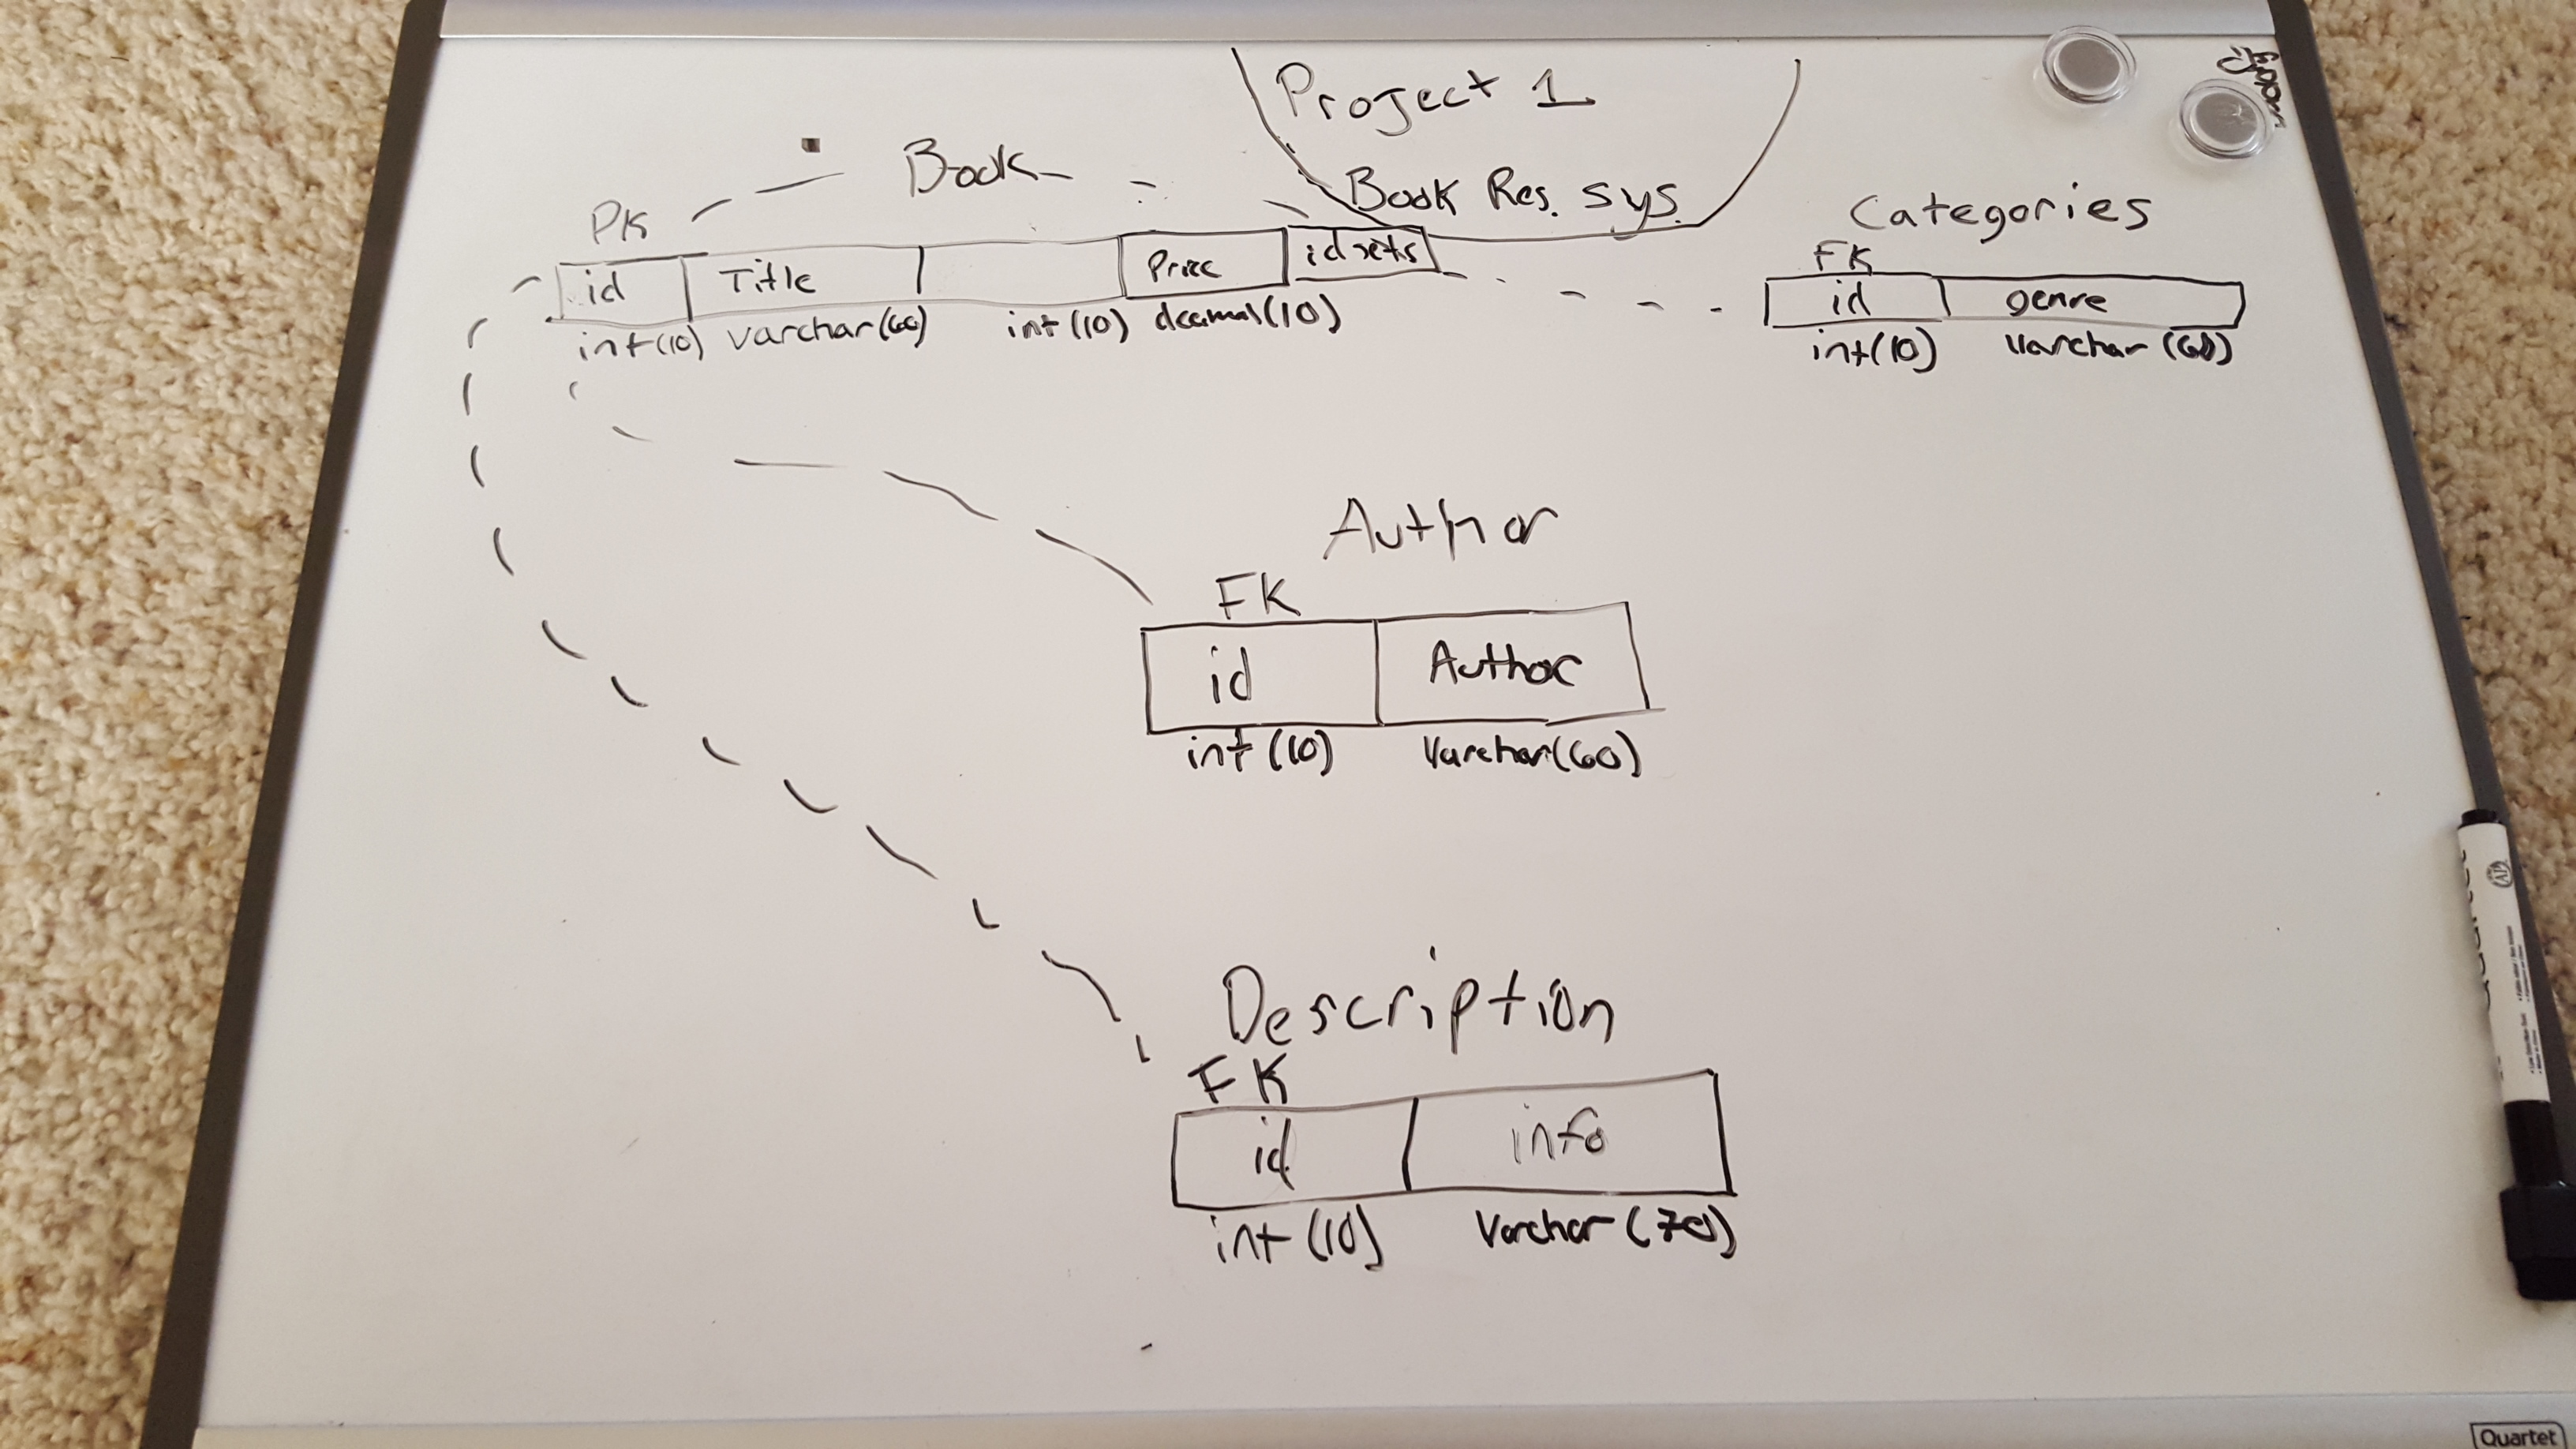 Project 1
Book Res. Sys.
Book
PK
id Title Price
int(10) varchar(60) int(10) decimal(10)
Categories
FK
id genre
int(10) varchar (60)
Author
FK
id Author
int (10) varchar(60)
Description
FK
id info
int (10) varchar (70)
Quartet